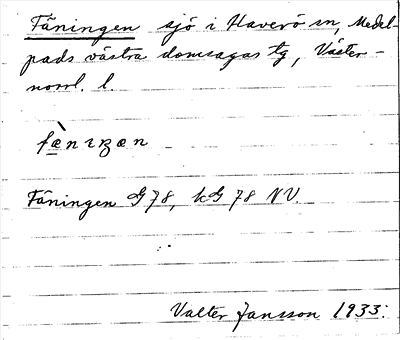 Fäningen sjö i Haverö sn, Medel-
pads västra domsagas tg, Väster-
norrl. l.
fæ̀nıŋæn
Fäningen G 78, kG 78 NV.
Valter Jansson 1933.